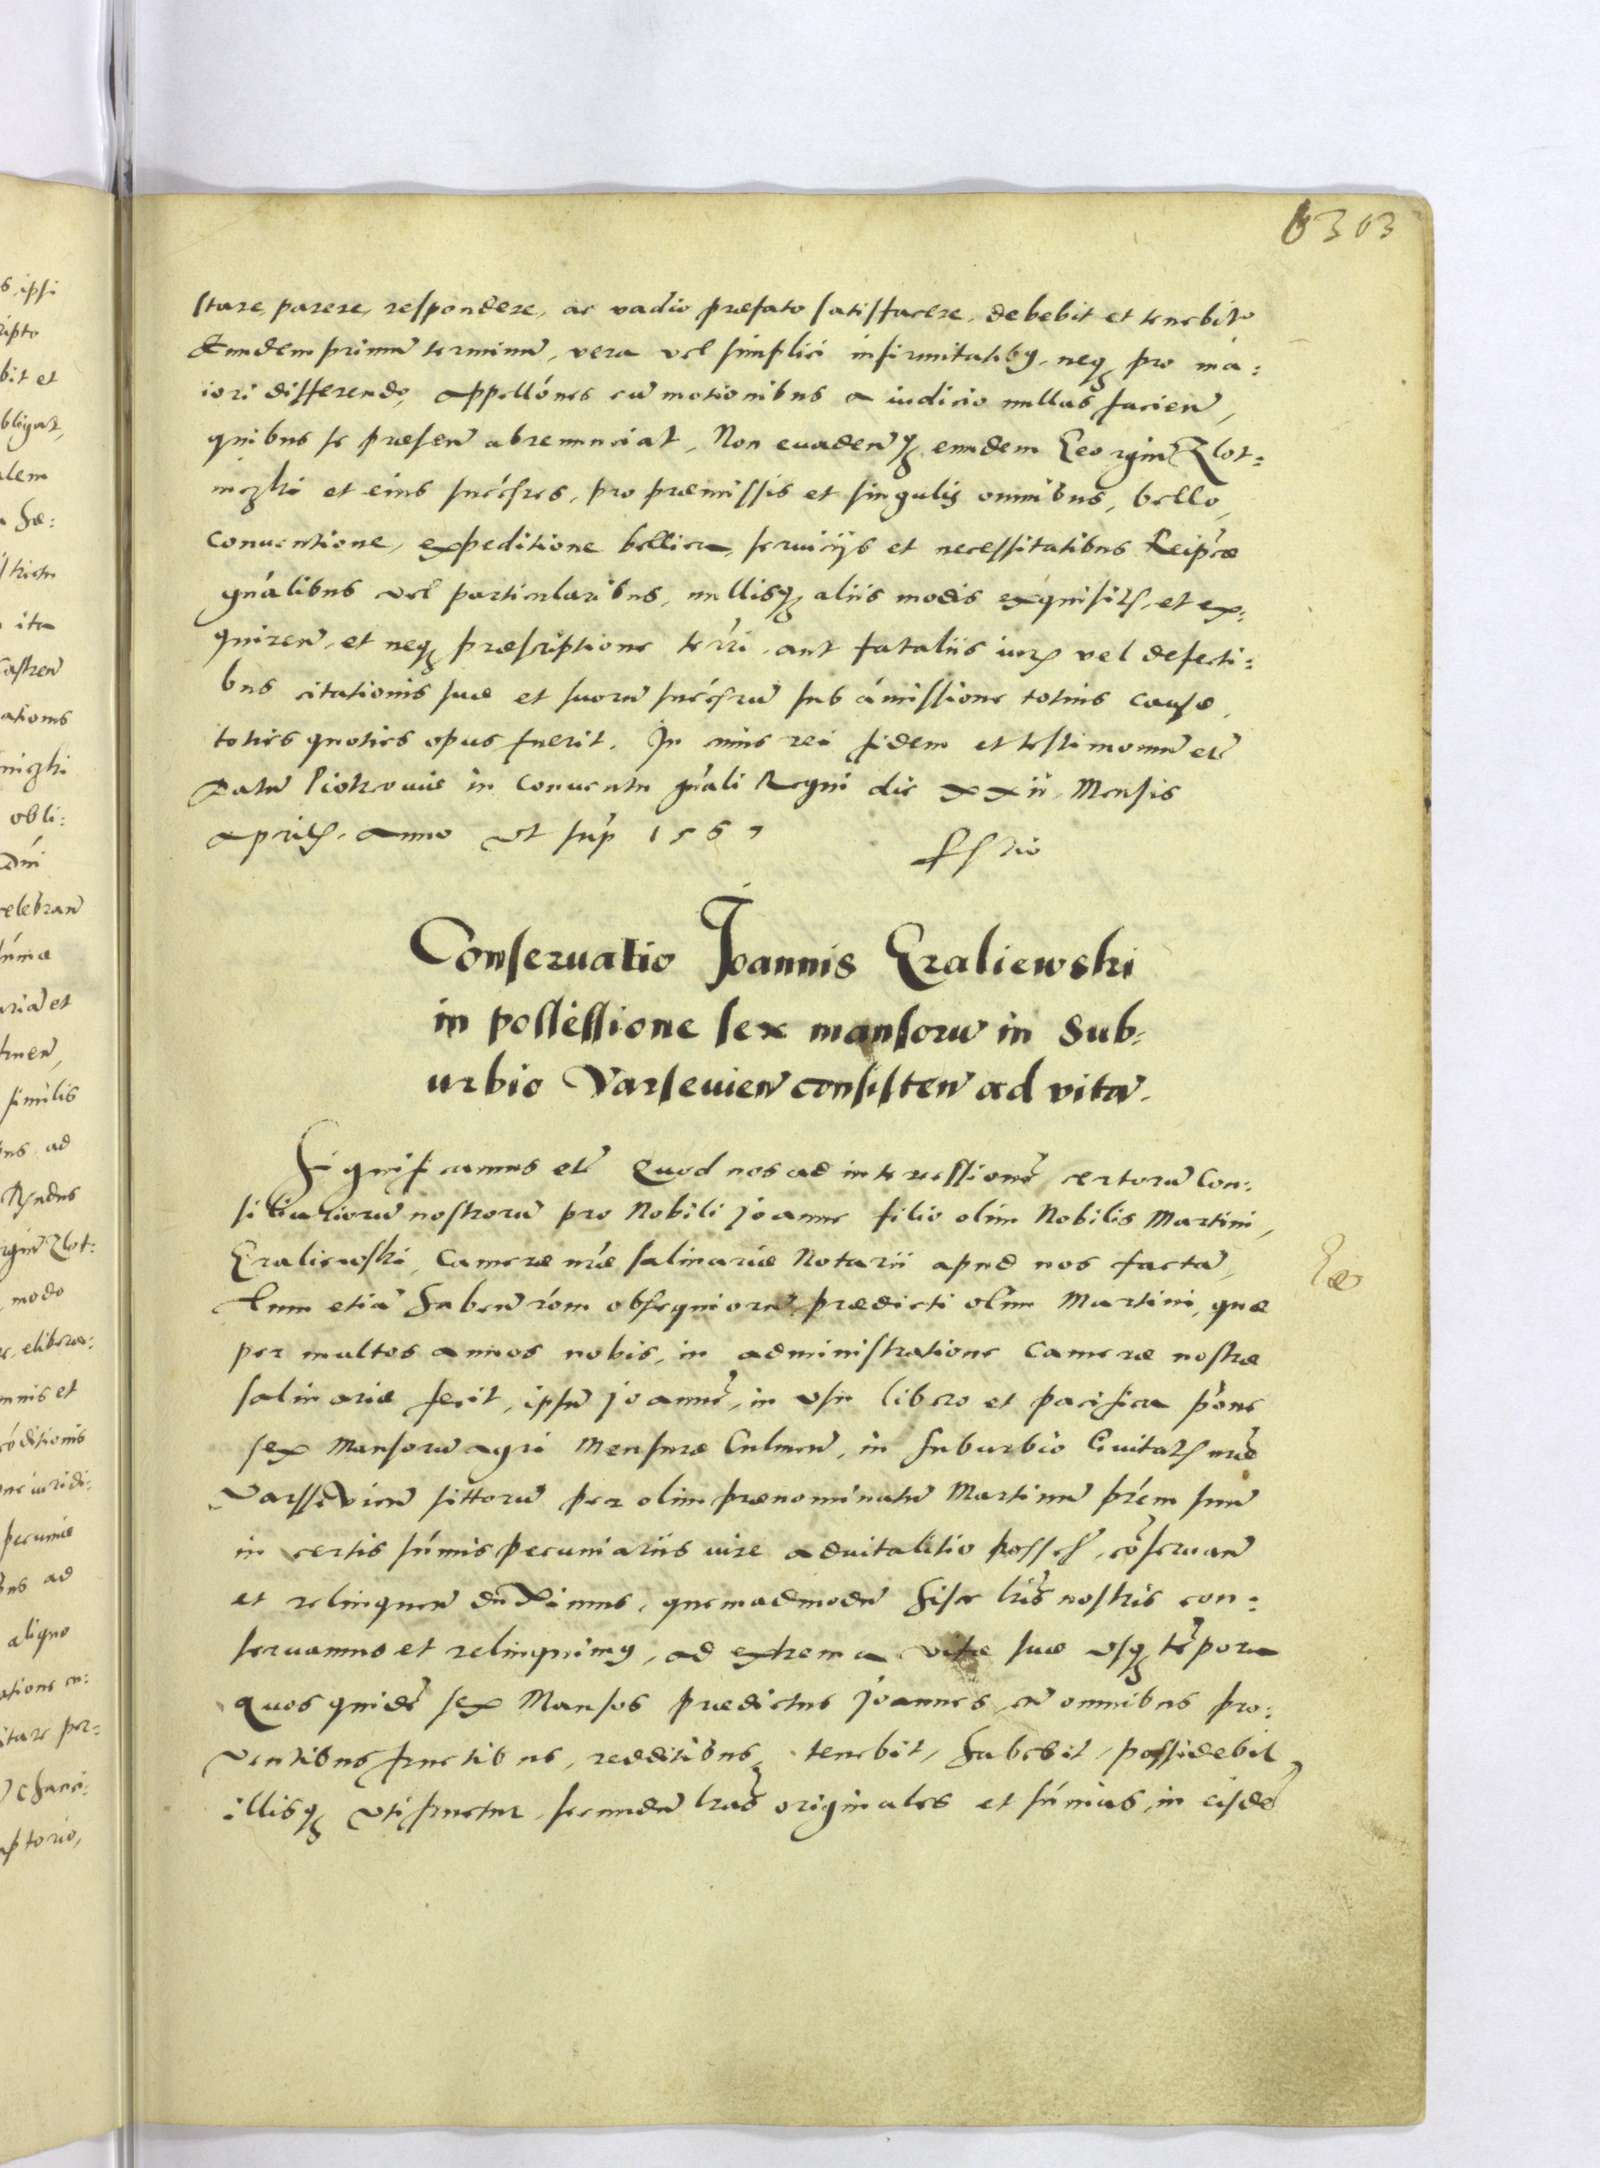 303
stare, parere, respondere, ac vadio præfato satisfacere, debebit et tenebit
Eundem primũ terminũ, vera vel simplici infirmitatibꝰ, neqꝫ pro ma:
iori differendo, appellónes cũ motionibus a iudicio nullas facieñ,
quibus se præseñ abrenunciat, Non euadeñqꝫ eundem Georgiũ Zlot:
niczki et eius succ̃sres, pro præmissis et singulis omnibus, bello,
conuentione, expeditione bellica, seruicijs et necessitatibus Reip̃cæ
gñalibus vel particularibus, nullisqꝫ aliis modis exquisitis, et ex:
quireñ, et neqꝫ præscriptione terr̃i, aut fataliis iuris vel defecti:
bus citationis suæ et suorũ succ̃srũ sub amissione totius causæ,
toties quoties opus fuerit. In cuius rei fidem et testimoniũ etc̃
Datũ Piotrcouiæ in Conuentu gñali Regni die xxii. Mensis
aprilis. Anno vt sup̃ 1567

Conseruatio Joannis Graliewski
in possessione sex mansorũ in Sub:
urbio Varseuieñ consisteñ ad vitã.

Significamus etc̃ Quod nos ad intercessionẽ certorũ Con:
siliariorũ nostrorũ pro Nobili Joanne filio olim Nobilis Martini,
Graliewski, Cameræ nr̃æ salinariæ Notarii apud nos factã,
Tum etiã habeñ rõm obsequiorũ prædicti olim Martini, quæ
per multos annos nobis, in administratione Cameræ nostræ
salinariæ fecit, ipsũ Joannẽ, in vsu libero et pacifica põne
sex Mansorũ agri Mensuræ Culmeñ, in suburbio Ciuitatis nr̃æ
Varssevieñ sittorũ per olim prænominatũ Martinũ pr̃em suũ
in certis sum̃is pecuniariis iure aduitalitio possess, cõseruanđ
et relinquenđ duximus, quemadmodũ hisce lr̃is nostris con:
seruamus et relinquimꝰ, ad extrema vitæ suæ vsqꝫ tẽpora
Quos quidẽ sex Mansos prædictus Joannes, cũ omnibus pro:
ventibus fructibus, redditibus, tenebit, habebit, possidebit,
illisqꝫ vti fruetur, secundũ lr̃as originales et sum̃as, in eisdẽ